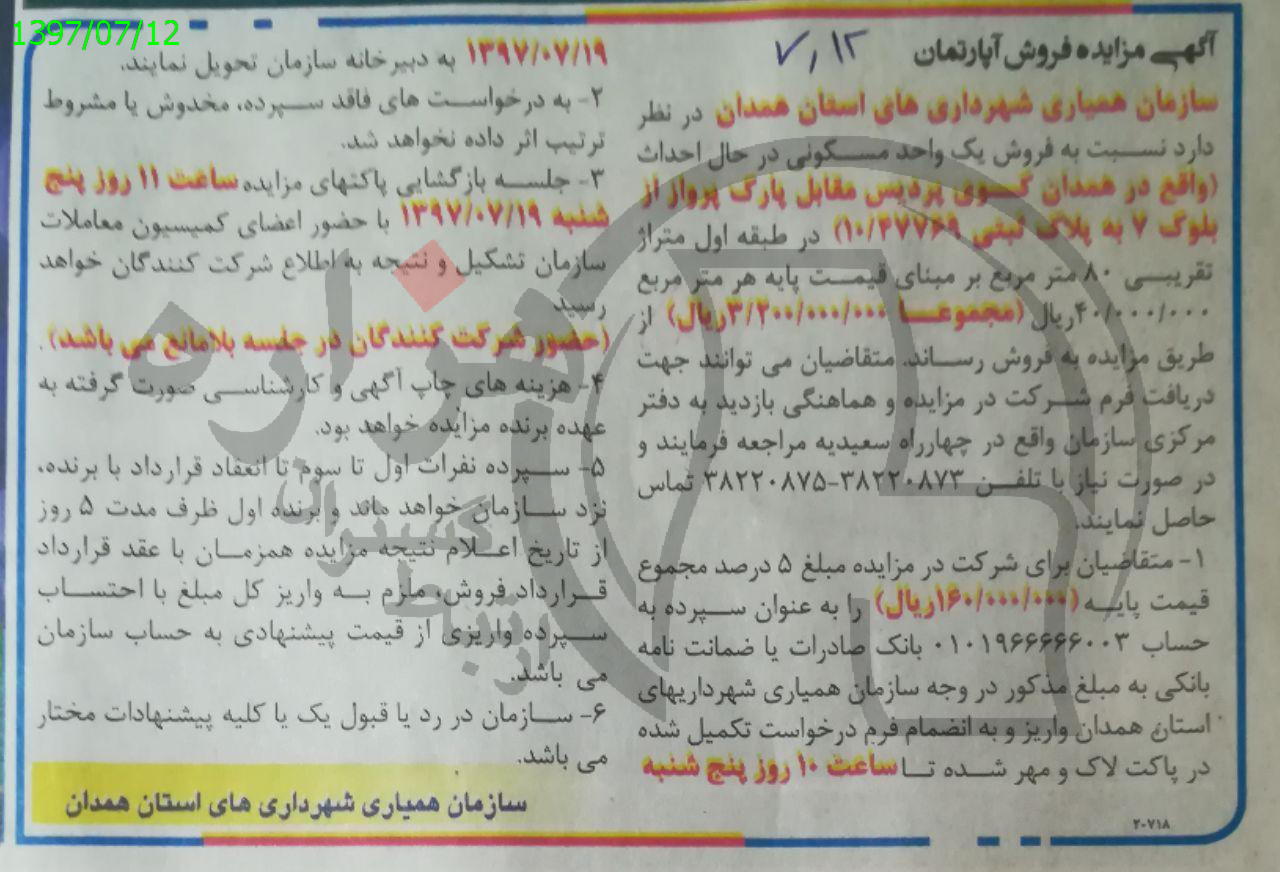 1397/07/12
۷٫۱۲
آگهی مزایده فروش آپارتمان
سازمان همیاری شهرداری های استان همدان در نظر
دارد نسبت به فروش یک واحد مسکونی در حال احداث
(واقع در همدان کوی پردیس مقابل پارک پرواز از
بلوک ۷ به پلاک ثبتی ۱۰/۴۷۷۶۹) در طبقه اول متراژ
تقریبی ۸۰ متر مربع بر مبنای قیمت پایه هر متر مربع
۴۰/۰۰۰/۰۰۰ریال (مجموعا ۳/۲۰۰/۰۰۰/۰۰۰ریال) از
طریق مزایده به فروش رساند. متقاضیان می توانند جهت
دریافت فرم شرکت در مزایده و هماهنگی بازدید به دفتر
مرکزی سازمان واقع در چهارراه سعیدیه مراجعه فرمایند و
در صورت نیاز با تلفن ۳۸۲۲۰۸۷۳-۳۸۲۲۰۸۷۵ تماس
حاصل نمایند.
۱- متقاضیان برای شرکت در مزایده مبلغ ۵ درصد مجموع
قیمت پایه (۱۶۰/۰۰۰/۰۰۰ریال) را به عنوان سپرده به
حساب ۰۱۰۱۹۶۶۶۶۶۰۰۳ بانک صادرات یا ضمانت نامه
بانکی به مبلغ مذکور در وجه سازمان همیاری شهرداریهای
استان همدان واریز و به انضمام فرم درخواست تکمیل شده
در پاکت لاک و مهر شده تا ساعت ۱۰ روز پنج شنبه
۲۰۷۱۸
۱۳۹۷/۰۷/۱۹ به دبیرخانه سازمان تحویل نمایند.
۲- به درخواست های فاقد سپرده، مخدوش یا مشروط
ترتیب اثر داده نخواهد شد.
۳- جلسه بازگشایی پاکتهای مزایده ساعت ۱۱ روز پنج
شنبه ۱۳۹۷/۰۷/۱۹ با حضور اعضای کمیسیون معاملات
سازمان تشکیل و نتیجه به اطلاع شرکت کنندگان خواهد
رسید
(حضور شرکت کنندگان در جلسه بلامانع می باشد).
۴- هزینه های چاپ آگهی و کارشناسی صورت گرفته به
عهده برنده مزایده خواهد بود.
۵- سپرده نفرات اول تا سوم تا انعقاد قرارداد با برنده،
نزد سازمان خواهد ماند و برنده اول ظرف مدت ۵ روز
از تاریخ اعلام نتیجه مزایده همزمان با عقد قرارداد
قرارداد فروش، ملزم به واریز کل مبلغ با احتساب
سپرده واریزی از قیمت پیشنهادی به حساب سازمان
می باشد.
۶- سازمان در رد یا قبول یک یا کلیه پیشنهادات مختار
می باشد.
سازمان همیاری شهرداری های استان همدان
هزاره
گستران
ارتباط